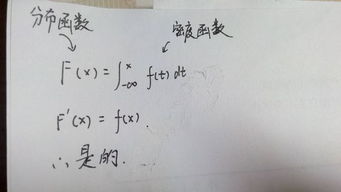 分布函数
密度函数
F(x)=∫_{-∞}^{x} f(t)dt
F'(x)=f(x).
∴是的.